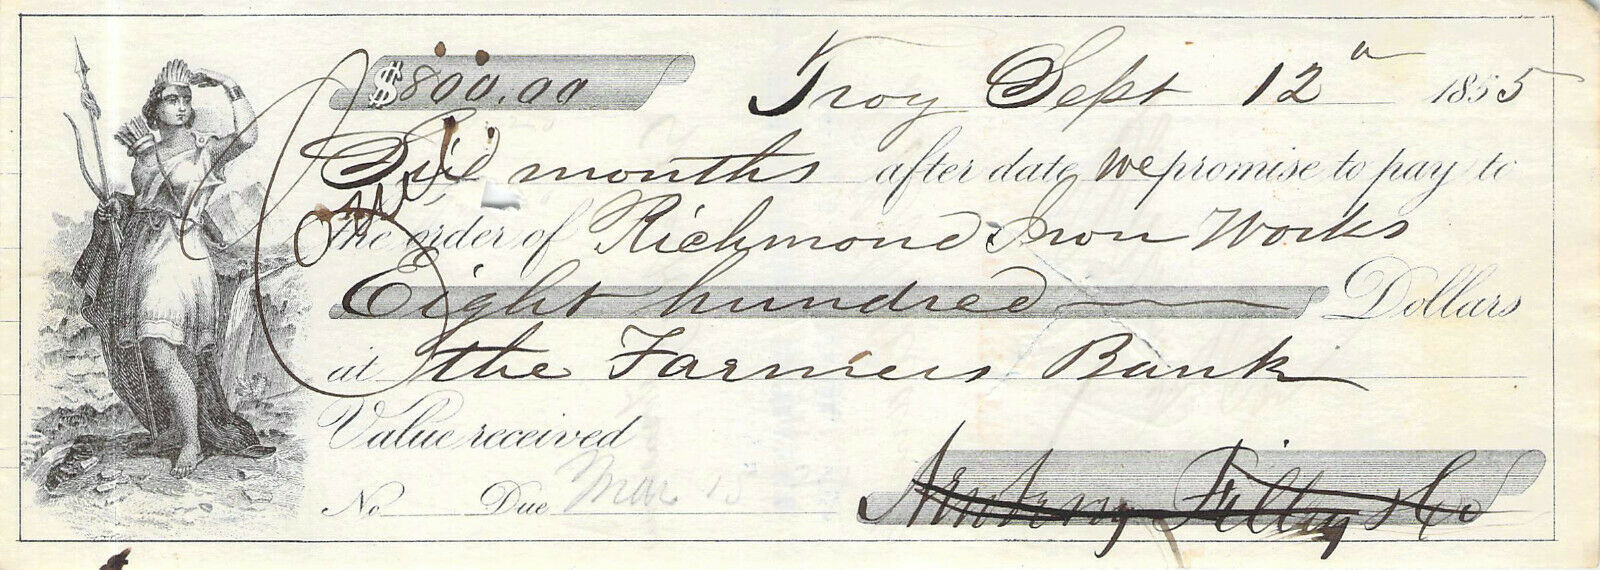 $800.00 Troy Sept 12 1855
Six months after date we promise to pay to
the order of Richmond Iron Works
Eight hundred Dollars
at the Farmers Bank
Value received
No Due Mar 15
& Co